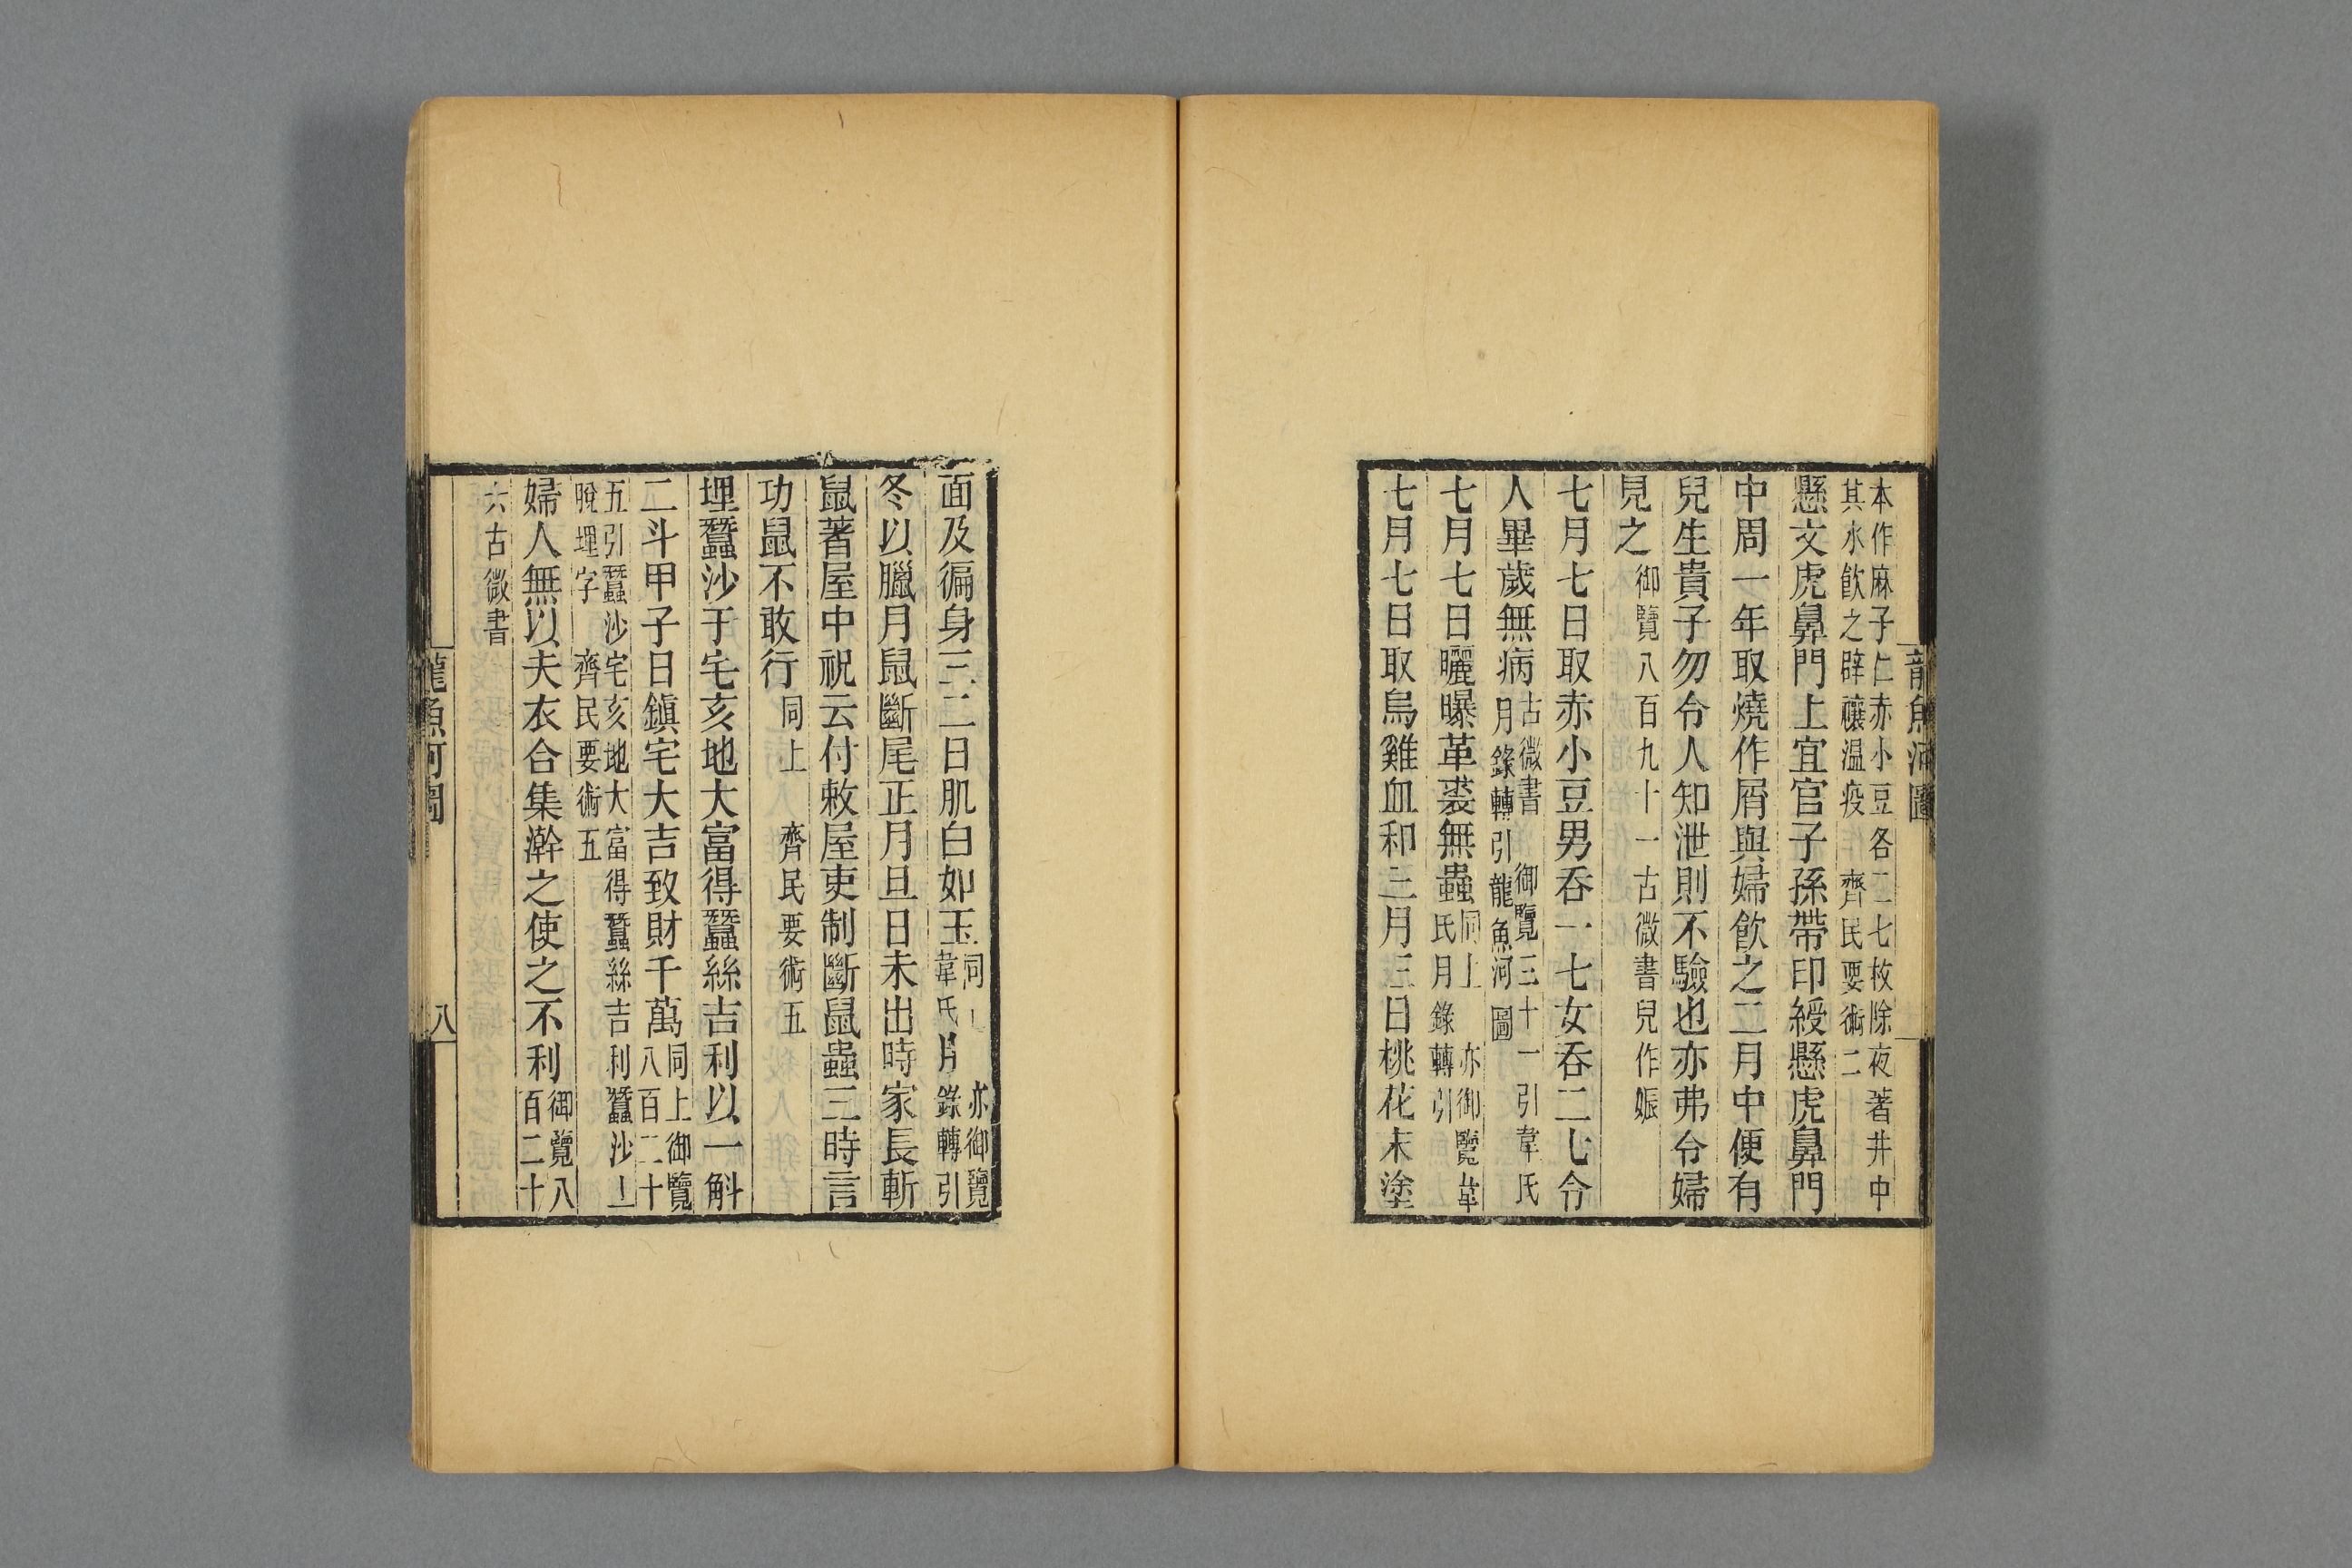 龍魚河圖
本作麻子仁赤小豆各二七枚除夜著井中
其水飲之辟禳温疫 齊民要術二
懸文虎鼻門上宜官子孫帶印綬懸虎鼻門
中周一年取燒作屑與婦飲之二月中便有
兒生貴子勿令人知泄則不驗也亦弗令婦
見之御覽八百九十一古微書兒作娠
七月七日取赤小豆男吞一七女吞二七令
人畢歲無病古微書 御覽三十一引韋氏月錄轉引龍魚河圖
七月七日曬曝革裘無蟲同上 亦御覽韋氏月錄轉引
七月七日取烏雞血和三月三日桃花末塗
面及徧身三二日肌白如玉同 亦御覽韋氏月錄轉引
冬以臘月鼠斷尾正月旦日未出時家長斬
鼠著屋中祝云付敕屋吏制斷鼠蟲三時言
功鼠不敢行同上 齊民要術五
埋蠶沙于宅亥地大富得蠶絲吉利以一斛
二斗甲子日鎮宅大吉致財千萬同上御覽八百二十
五引蠶沙宅亥地大富得蠶絲吉利蠶沙上
脫埋字 齊民要術五
婦人無以夫衣合集澣之使之不利御覽八百二十
六古微書
龍魚河圖
八